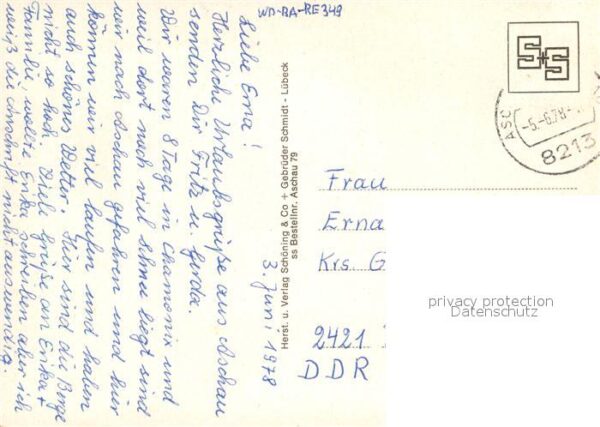 WD-BA-RE349
3. Juni 1978
Liebe Erna!
Herzliche Urlaubsgrüße aus Aschau
senden Dir Fritz u. Gerda.
Wir waren 8 Tage in Chamonix und
weil dort noch viel Schnee liegt sind
wir nach Aschau gefahren und hier
können wir viel laufen und haben
auch schönes Wetter. Hier sind die Berge
nicht so hoch. Viele Grüße an Erika +
Familie, wollte Erika schreiben aber ich
weiß die Anschrift nicht auswendig.
Herst. u. Verlag Schöning & Co + Gebrüder Schmidt - Lübeck
ss Bestellnr. Aschau 79
S+S
ASC
-5.-6.78-
8213
Frau
Erna
Krs G
2421
DDR
privacy protection
Datenschutz